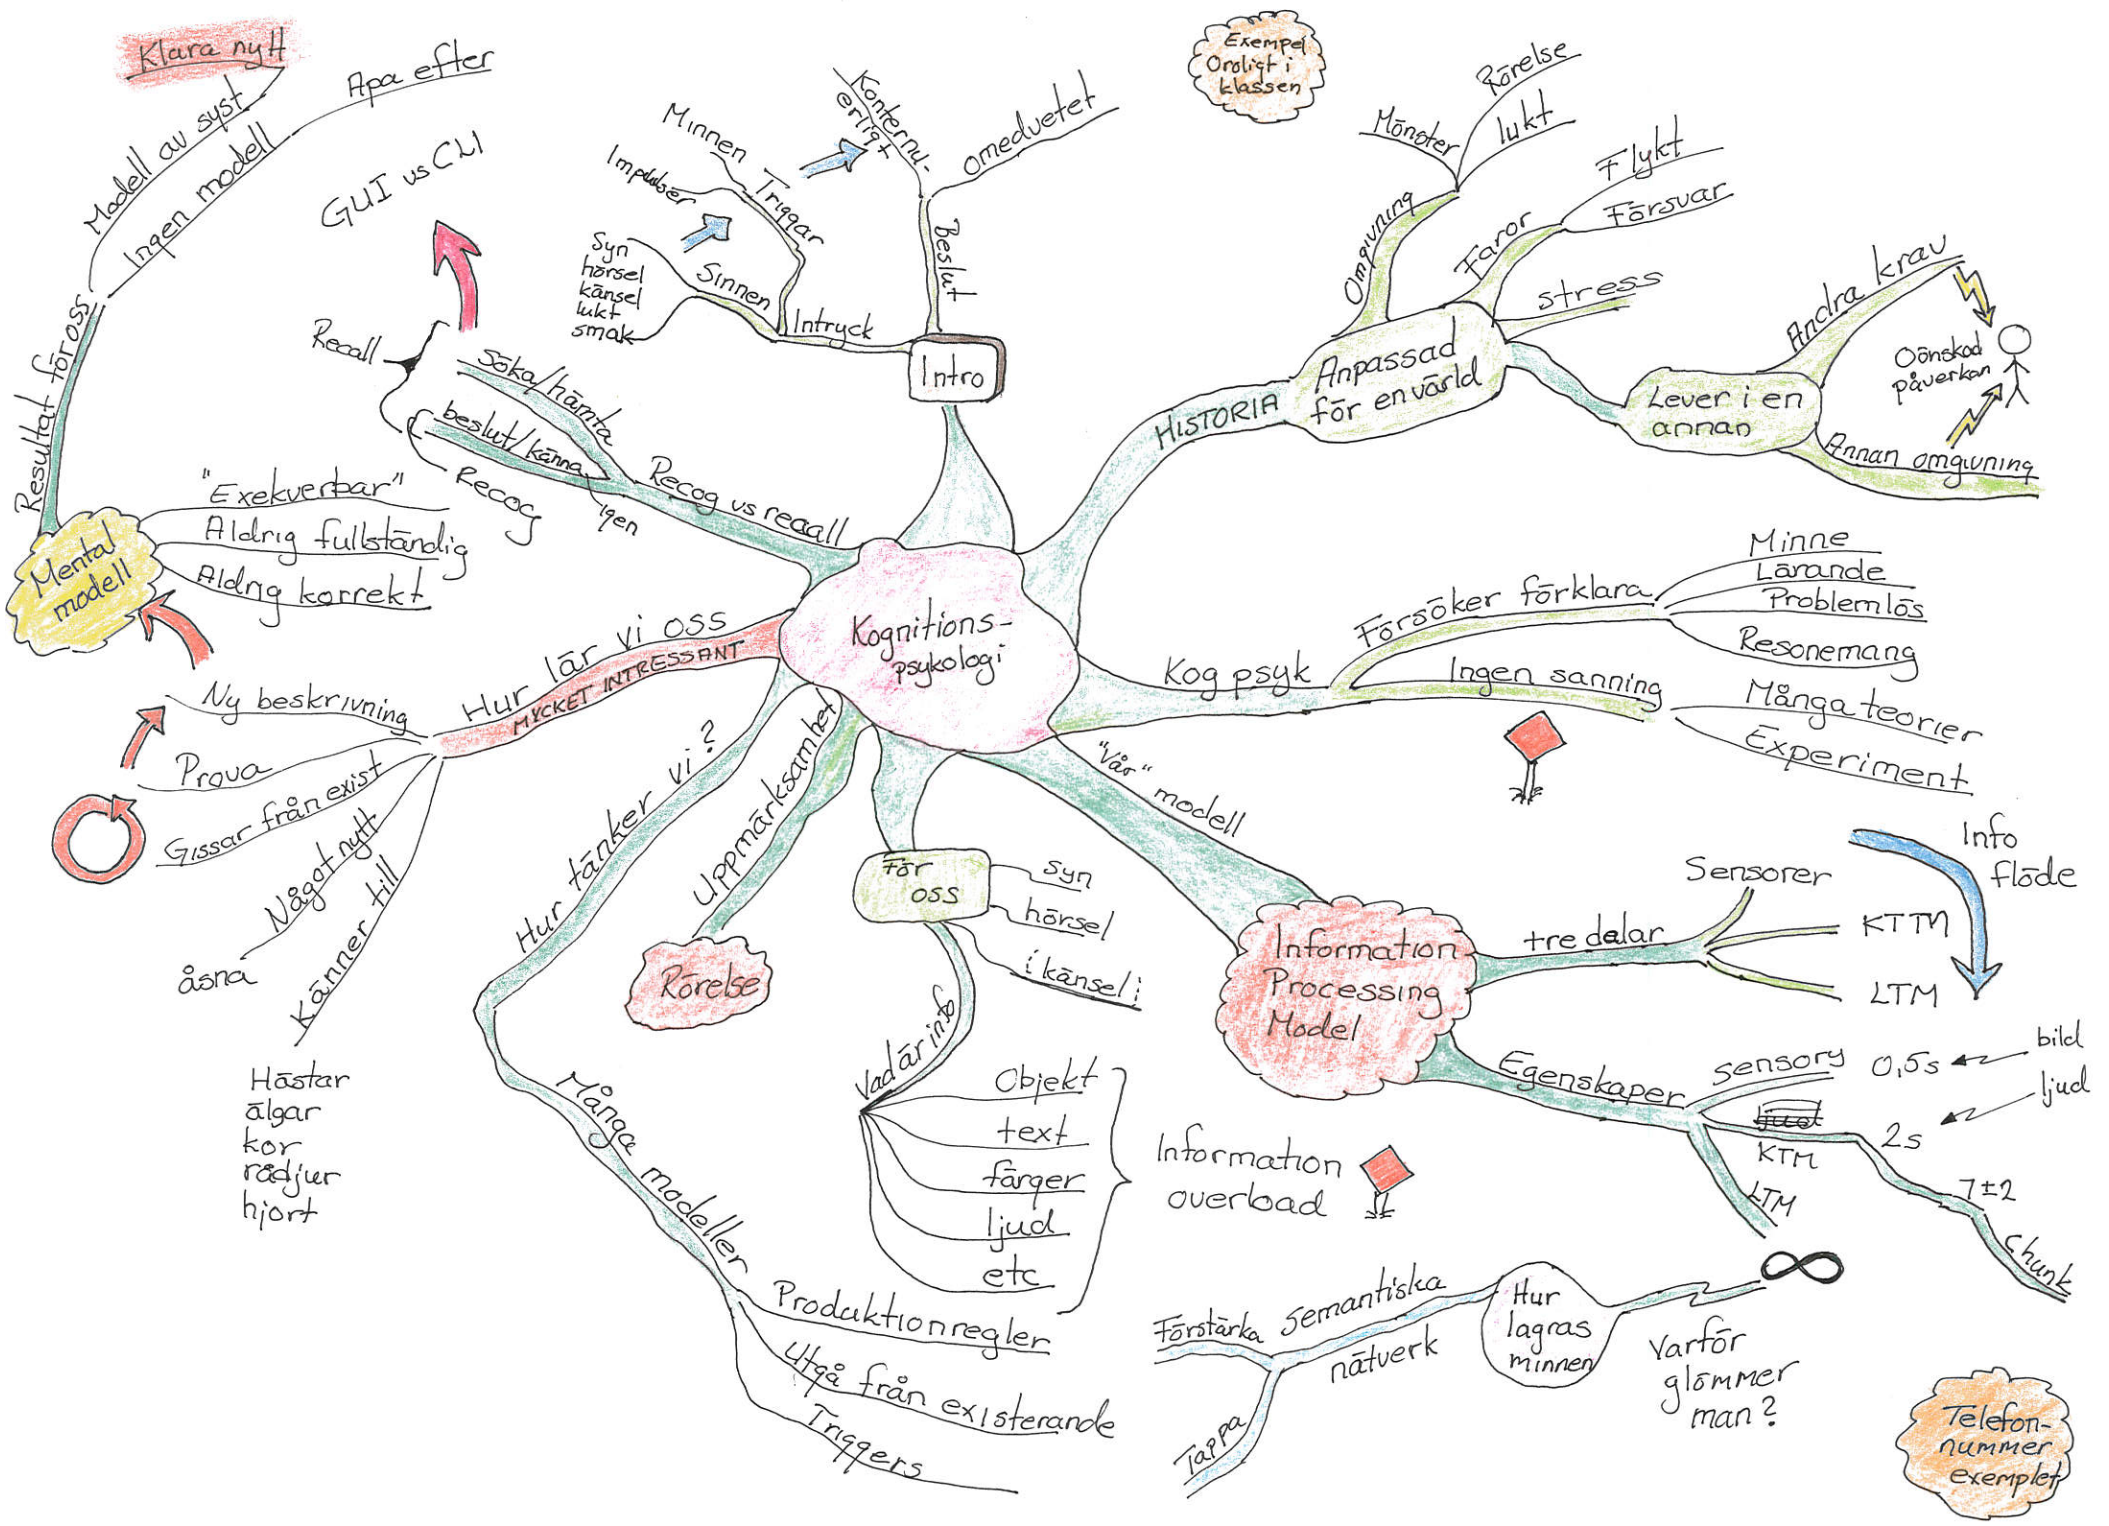 Kognitions-
psykologi
Intro
Intryck
Sinnen
Syn
hörsel
känsel
lukt
smak
Triggar
Minnen
Impulser
Beslut
Konternu-
erligt
omedvetet
Exempel
Oroligt i
klassen
HISTORIA
Anpassad
för en värld
Omgivning
Mönster
Rörelse
lukt
Faror
Flykt
Försvar
stress
Lever i en
annan
Andra krav
Annan omgivning
Oönskad
påverkan
Kog psyk
Försöker förklara
Minne
Lärande
Problemlös
Resonemang
Ingen sanning
Många teorier
Experiment
"Vår" modell
Information
Processing
Model
tre delar
Sensorer
KTTM
LTM
Info
flöde
Egenskaper
Sensory
0,5s
bild
ljud
ljud
KTM
2s
7±2
Chunk
LTM
Varför
glömmer
man?
Hur
lagras
minnen
semantiska
nätverk
Förstärka
Tappa
Telefon-
nummer
exemplet
För
oss
syn
hörsel
i känsel i
Vad är info
Objekt
text
färger
ljud
etc
Information
overload
Uppmärksamhet
Rörelse
Hur tänker vi?
Många modeller
Produktionregler
Utgå från existerande
Triggers
Hur lär vi oss
MYCKET INTRESSANT
Ny beskrivning
Prova
Gissar från exist
Något nytt
åsna
Känner till
Hästar
älgar
kor
rådjur
hjort
Mental
modell
"Exekverbar"
Aldrig fullständig
Aldrig korrekt
Resultat för oss
Modell av syst
Klara nytt
Ingen modell
Apa efter
Recog vs recall
Söka/hämta
beslut/känna
igen
Recall
Recog
GUI vs CLI